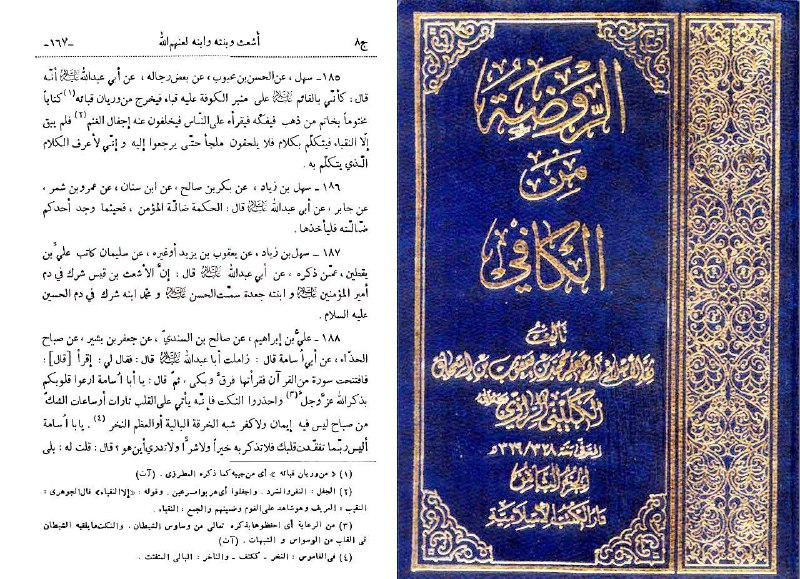 ج٨ أشعث وبنته وابنه لعنهم الله -١٦٧-
١٨٥ـ سهل ، عن الحسن بن محبوب ، عن بعض رجاله ، عن أبي عبدالله عليه السلام أنّه
قال : كأنّي بالقائم عليه السلام على منبر الكوفة عليه قباء فيخرج من وريان قبائه (١) كتاباً
مختوماً بخاتم من ذهب فيفكّه فيقرأه على النّاس فيجفلون عنه إجفال الغنم (٢) فلم يبق
إلّا النقباء فيتكلّم بكلام فلا يلحقون ملجأ حتّى يرجعوا إليه و إنّي لأعرف الكلام
الّذي يتكلّم به .
١٨٦ ـ سهل بن زياد ، عن بكر بن صالح ، عن ابن سنان ، عن عمرو بن شمر ،
عن جابر ، عن أبي عبدالله عليه السلام قال : الحكمة ضالّة المؤمن ، فحيثما وجد أحدكم
ضالّته فليأخذها .
١٨٧ ـ سهل بن زياد ، عن يعقوب بن يزيد أوغيره ، عن سليمان كاتب عليّ بن
يقطين ، عمّن ذكره ، عن أبي عبدالله عليه السلام قال : إنَّ الأشعث بن قيس شرك في دم
أمير المؤمنين عليه السلام و ابنته جعدة سمّت الحسن عليه السلام و محمّد ابنه شرك في دم الحسين
عليه السلام .
١٨٨ ـ عليُّ بن إبراهيم ، عن صالح بن السنديّ ، عن جعفر بن بشير ، عن صباح
الحذّاء ، عن أبي اُسامة قال : زاملت أبا عبدالله عليه السلام قال : فقال لي : إقرأ [قال] :
فافتتحت سورة من القرآن فقرأتها فرقَّ وبكى ، ثمّ قال : يا أبا اُسامة ارعوا قلوبكم
بذكر الله عزَّ وجلَّ (٣) واحذروا النكت فإنّه يأتي على القلب تارات أوساعات الشكّ
من صباح ليس فيه إيمان ولا كفر شبه الخرقة البالية أو العظم النخر (٤) . يا أبا اُسامة
أليس ربّما تفقّدت قلبك فلا تذكر به خيراً ولا شرًّا ولا تدري أين هو ؟ قال : قلت له : بلى
(١) «من وريان قبائه» أى من جيبه كما ذكره المطرزى . (آت)
(٢) الجفل : النفر والشرد . واجفلوا أى هربوا مسرعين . وقوله : «إلا النقباء» قال الجوهرى :
النقيب : العريف وهو شاهد على القوم وضمينهم والجمع : النقباء .
(٣) من الرعاية أى احفظوها بذكره تعالى من وساوس الشيطان . والنكت ما يلقيه الشيطان
فى القلب من الوسواس و الشبهات . (آت)
(٤) فى القاموس : النخر ـ ككتف ـ والناخر : البالى المتفتت .
الرَّوضَة
مِنَ
الكافي
تأليف
الكليني الرازي
المتوفى سنة ٣٢٨/٣٢٩ هـ
الجزء الثامن
دار الكتب الإسلامية